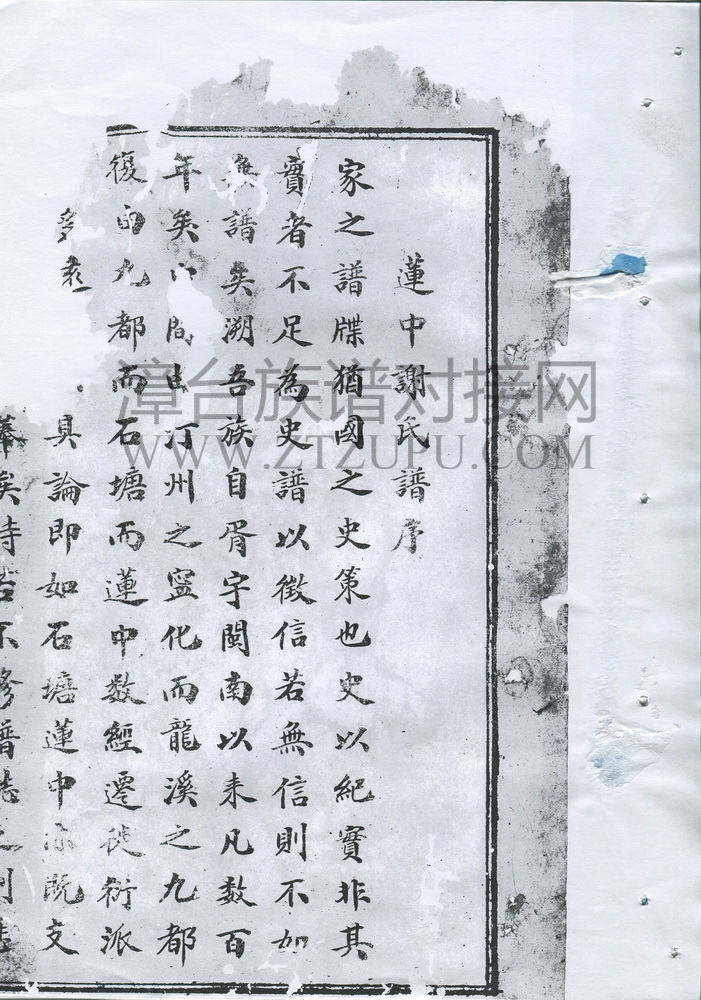 蓮中謝氏譜序
家之譜牒猶國之史策也史以紀實非其
實者不足為史譜以徵信若無信則不如
無譜矣溯吾族自胥宇閩南以來凡數百
年矣間由汀州之寧化而龍溪之九都
復由九都而石塘而蓮中數經遷徙衍派
多 具論即如石塘蓮中 既支
矣 不修譜
漳台族谱对接网
WWW.ZTZUPU.COM